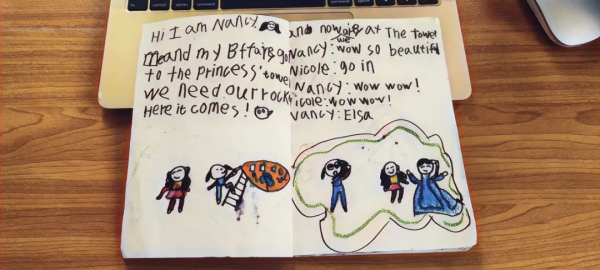 Hi I am Nancy
me and my Bffair go
to the Princess' towe
we need our rock
Here it comes!
and now we are at The towe
Nancy: wow so beautiful
Nicole: go in
Nancy: wow wow!
Nicole: wow wow!
Nancy: Elsa